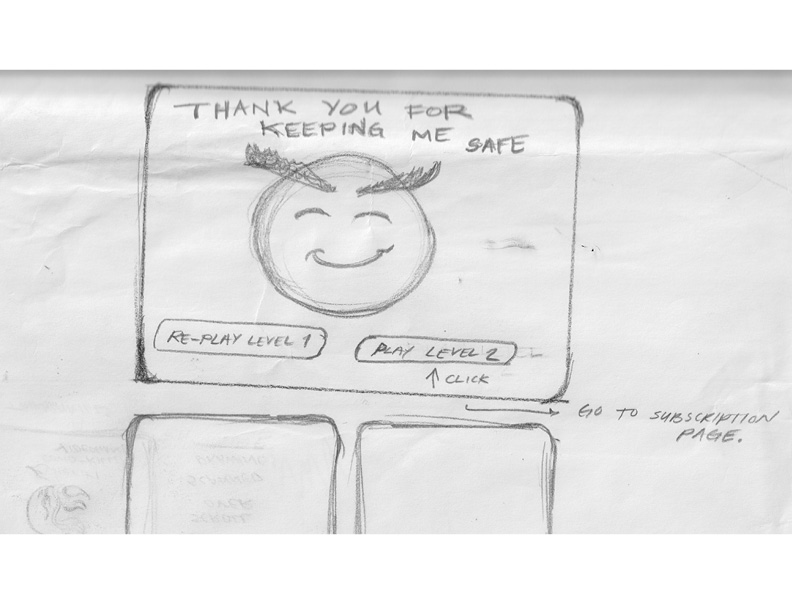 THANK YOU FOR
KEEPING ME SAFE
RE-PLAY LEVEL 1
PLAY LEVEL 2
CLICK
GO TO SUBSCRIPTION
PAGE.